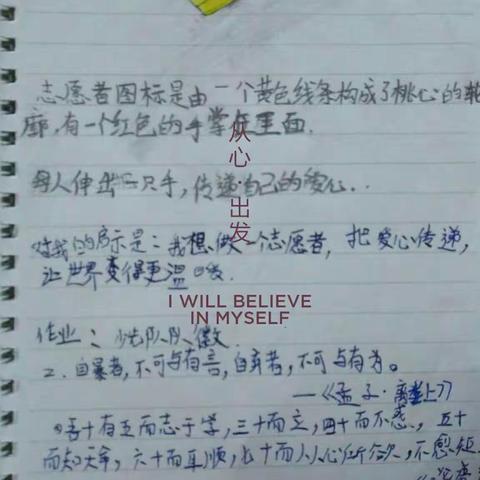 志愿者图标是由一个黄色线条构成了桃心的轮
廓,有一个红色的手掌在里面.
每人伸出一只手,传递自己的爱心..
从心·出发
对我的启示是:我想做一个志愿者,把爱心传递,
让世界变得更温暖.
I WILL BELIEVE
IN MYSELF
作业:少先队队徽
2.自暴者,不可与有言,自弃者,不可与有为。
——《孟子·离娄上》
吾十有五而志于学,三十而立,四十而不惑,五十
而知天命,六十而耳顺,七十而从心所欲,不愈矩.